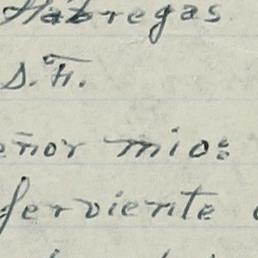 Hábregas
S. H.
eñor mio:
ferviente